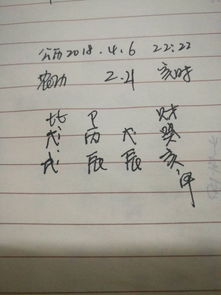 公历 2018.4.6 22:22
农历 2.21 亥时
比 卩 财
戊 丙 戊 癸
戌 辰 辰 亥